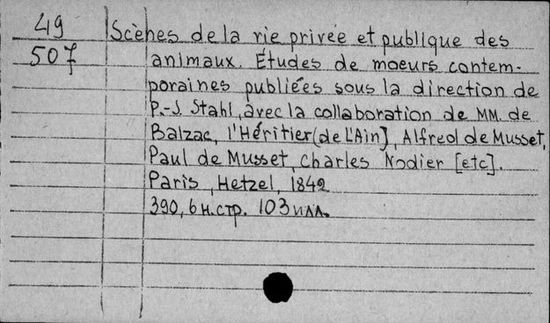 49 Scènes de la vie privée et publique des
507 animaux. Études de moeurs contem-
poraines publiées sous la direction de
P.-J. Stahl, avec la collaboration de MM. de
Balzac, l'Héritier (de L'Ain], Alfred de Musset,
Paul de Musset, Charles Nodier [etc].
Paris, Hetzel, 1842
390, 6 н.стр. 103 илл.